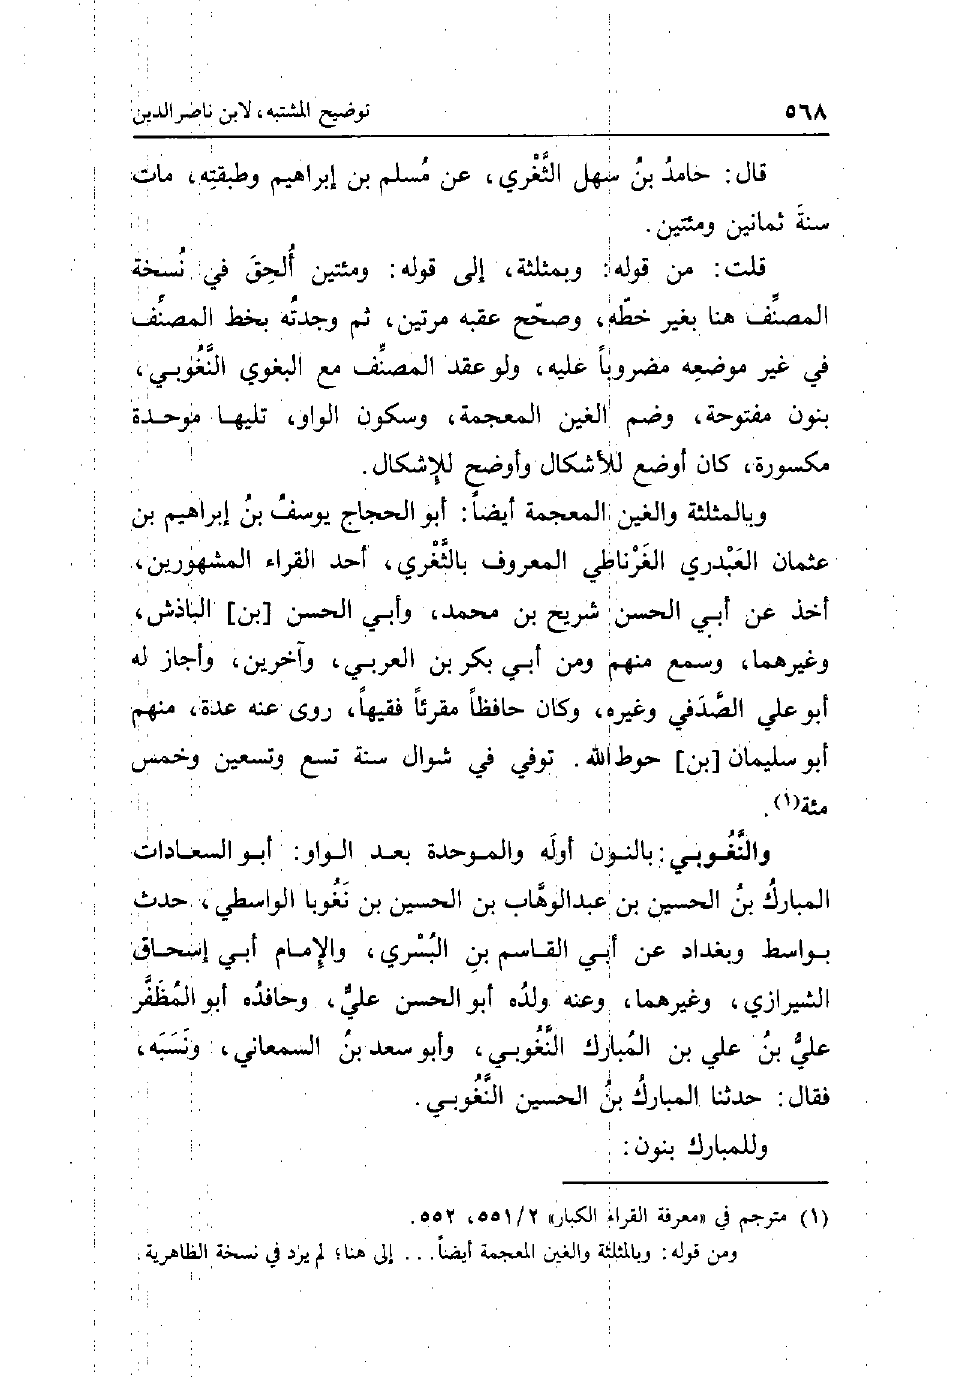 ٥٦٨ توضيح المشتبه، لابن ناصر الدين
قال: حامدُ بنُ سهل الثَّغْري، عن مُسلم بن إبراهيم وطبقتِه، مات
سنةَ ثمانين ومئتين.
قلت: من قوله: وبمثلثة، إلى قوله: ومئتين أُلحِقَ في نُسخة
المصنِّف هنا بغير خطّه، وصحّح عقبه مرتين، ثم وجدتُه بخط المصنِّف
في غير موضعِه مضروباً عليه، ولو عقد المصنِّف مع البغوي النَّغُوبـي،
بنون مفتوحة، وضم الغين المعجمة، وسكون الواو، تليهـا موحـدة
مكسورة، كان أوضع للأشكال وأوضح للإشكال.
وبالمثلثة والغين المعجمة أيضاً: أبو الحجاج يوسفُ بنُ إبراهيم بن
عثمان العَبْدري الغَرْناطي المعروف بالثَّغْري، أحد القراء المشهورين،
أخذ عن أبـي الحسن شريح بن محمد، وأبـي الحسن [بن] الباذش،
وغيرهما، وسمع منهم ومن أبـي بكر بن العربـي، وآخرين، وأجاز له
أبو علي الصَّدَفي وغيره، وكان حافظاً مقرئاً فقيهاً، روى عنه عدة، منهم
أبو سليمان [بن] حوط الله. توفي في شوال سنة تسع وتسعين وخمس
مئة(١).
والنَّغُـوبـي: بالنـون أولَه والمـوحدة بعـد الـواو: أبـو السعـادات
المباركُ بنُ الحسين بن عبدالوهَّاب بن الحسين بن نَغُوبا الواسطي، حدث
بـواسط وبغداد عن أبـي القـاسم بنِ البُسْري، والإمـام أبـي إسحـاق
الشيرازي، وغيرهما، وعنه ولدُه أبو الحسن عليٌّ، وحافدُه أبو المُظَفَّر
عليُّ بنُ علي بن المُبارك النَّغُوبـي، وأبو سعد بنُ السمعاني، ونَسَبَه،
فقال: حدثنا المباركُ بنُ الحسين النَّغُوبـي.
وللمبارك بنون:
(١) مترجم في «معرفة القراء الكبار» ٢/٥٥١، ٥٥٢.
ومن قوله: وبالمثلثة والغين المعجمة أيضاً... إلى هنا؛ لم يرد في نسخة الظاهرية.